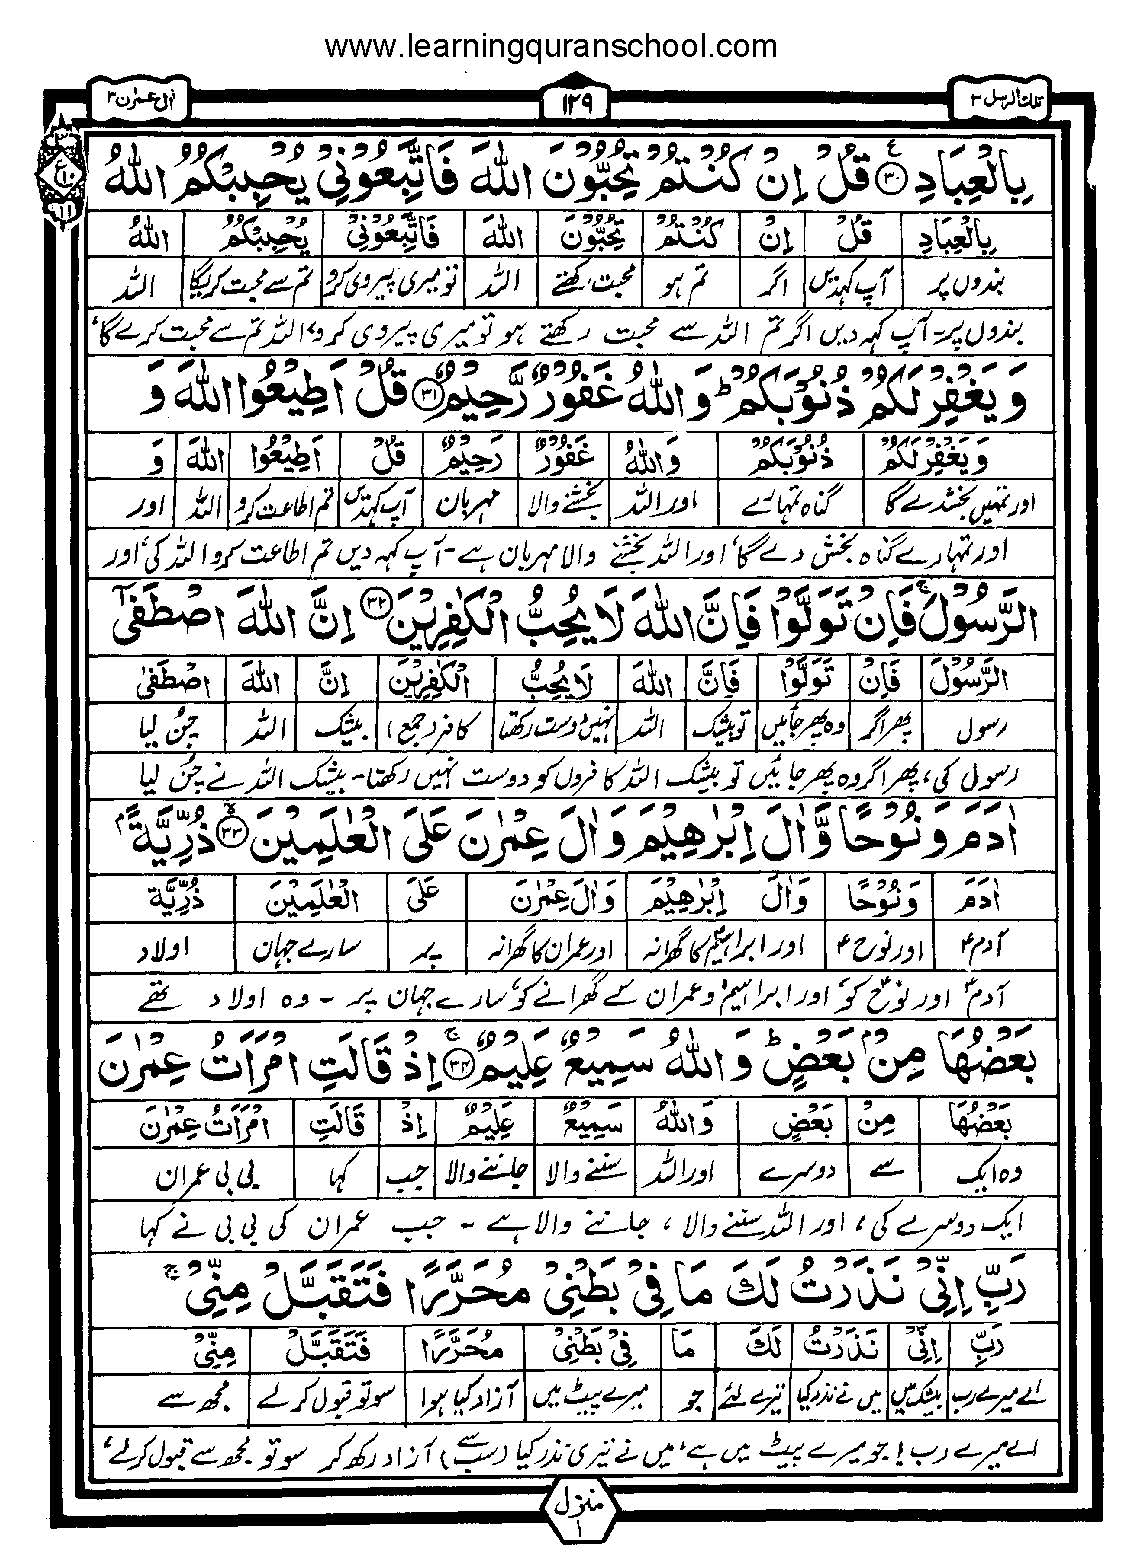 www.learningquranschool.com
تلك الرسل ۳
۱۲۹
اٰل عمرٰن ۳
۳
ع
۱۰
۱۱
بِالْعِبَادِ ﴿۳۰﴾ قُلْ اِنْ كُنْتُمْ تُحِبُّوْنَ اللّٰهَ فَاتَّبِعُوْنِيْ يُحْبِبْكُمُ اللّٰهُ
بِالْعِبَادِ قُلْ اِنْ كُنْتُمْ تُحِبُّوْنَ اللّٰهَ فَاتَّبِعُوْنِيْ يُحْبِبْكُمُ اللّٰهُ
بندوں پر آپ کہدیں اگر تم ہو محبت رکھتے اللہ تو میری پیروی کرو تم سے محبت کریگا اللہ
بندوں پر۔ آپ کہہ دیں اگر تم اللہ سے محبت رکھتے ہو تو میری پیروی کرو، اللہ تم سے محبت کرے گا،
وَيَغْفِرْ لَكُمْ ذُنُوْبَكُمْ ؕ وَاللّٰهُ غَفُوْرٌ رَّحِيْمٌ ﴿۳۱﴾ قُلْ اَطِيْعُوا اللّٰهَ وَ
وَيَغْفِرْ لَكُمْ ذُنُوْبَكُمْ وَاللّٰهُ غَفُوْرٌ رَحِيْمٌ قُلْ اَطِيْعُوا اللّٰهَ وَ
اور تمہیں بخشدے گا گناہ تمہارے اور اللہ بخشنے والا مہربان آپ کہدیں تم اطاعت کرو اللہ اور
اور تمہارے گناہ بخش دے گا، اور اللہ بخشنے والا مہربان ہے۔ آپ کہہ دیں تم اطاعت کرو اللہ کی، اور
الرَّسُوْلَ ۚ فَاِنْ تَوَلَّوْا فَاِنَّ اللّٰهَ لَا يُحِبُّ الْكٰفِرِيْنَ ﴿۳۲﴾ اِنَّ اللّٰهَ اصْطَفٰٓى
الرَّسُوْلَ فَاِنْ تَوَلَّوْا فَاِنَّ اللّٰهَ لَا يُحِبُّ الْكٰفِرِيْنَ اِنَّ اللّٰهَ اصْطَفٰى
رسول پھر اگر وہ پھر جائیں تو بیشک اللہ نہیں دوست رکھتا کافر (جمع) بیشک اللہ چُن لیا
رسول کی، پھر اگر وہ پھر جائیں تو بیشک اللہ کافروں کو دوست نہیں رکھتا۔ بیشک اللہ نے چُن لیا
اٰدَمَ وَنُوْحًا وَّاٰلَ اِبْرٰهِيْمَ وَاٰلَ عِمْرٰنَ عَلَى الْعٰلَمِيْنَ ﴿۳۳﴾ ذُرِّيَّةًۢ
اٰدَمَ وَنُوْحًا وَاٰلَ اِبْرٰهِيْمَ وَاٰلَ عِمْرٰنَ عَلَى الْعٰلَمِيْنَ ذُرِّيَّةً
آدمؑ اور نوحؑ اور ابراہیمؑ کا گھرانہ اور عمران کا گھرانہ پر سارے جہان اولاد
آدمؑ اور نوحؑ کو، اور ابراہیمؑ و عمران کے گھرانے کو سارے جہان پر۔ وہ اولاد تھے
بَعْضُهَا مِنْۢ بَعْضٍ ؕ وَاللّٰهُ سَمِيْعٌ عَلِيْمٌ ﴿۳۴﴾ ۚ اِذْ قَالَتِ امْرَاَتُ عِمْرٰنَ
بَعْضُهَا مِنْ بَعْضٍ وَاللّٰهُ سَمِيْعٌ عَلِيْمٌ اِذْ قَالَتِ امْرَاَتُ عِمْرٰنَ
وہ ایک سے دوسرے اور اللہ سننے والا جاننے والا جب کہا بی بی عمران
ایک دوسرے کی، اور اللہ سننے والا، جاننے والا ہے۔ جب عمران کی بی بی نے کہا
رَبِّ اِنِّيْ نَذَرْتُ لَكَ مَا فِيْ بَطْنِيْ مُحَرَّرًا فَتَقَبَّلْ مِنِّيْ ۚ
رَبِّ اِنِّيْ نَذَرْتُ لَكَ مَا فِيْ بَطْنِيْ مُحَرَّرًا فَتَقَبَّلْ مِنِّيْ
اے میرے رب بیشک میں میں نے نذر کیا تیرے لئے جو میرے پیٹ میں آزاد کیا ہوا سو تو قبول کرلے مجھ سے
اے میرے رب! جو میرے پیٹ میں ہے، میں نے تیری نذر کیا (سب سے) آزاد رکھ کر سو تو مجھ سے قبول کرلے،
منزل
۱